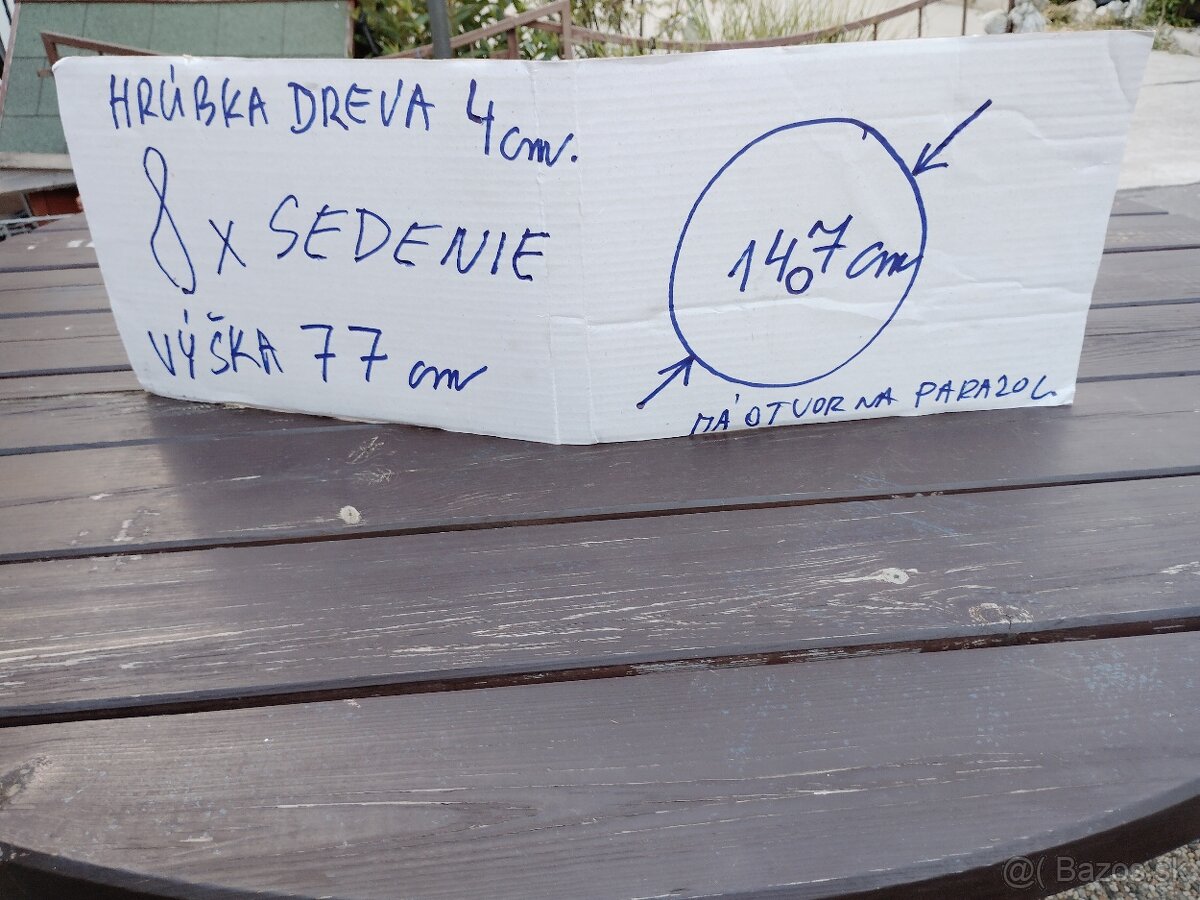 HRÚBKA DREVA 4 cm.
8 x SEDENIE
VÝŠKA 77 cm
147 cm
MÁ OTVOR NA PARAZOL
@( Bazos.sk